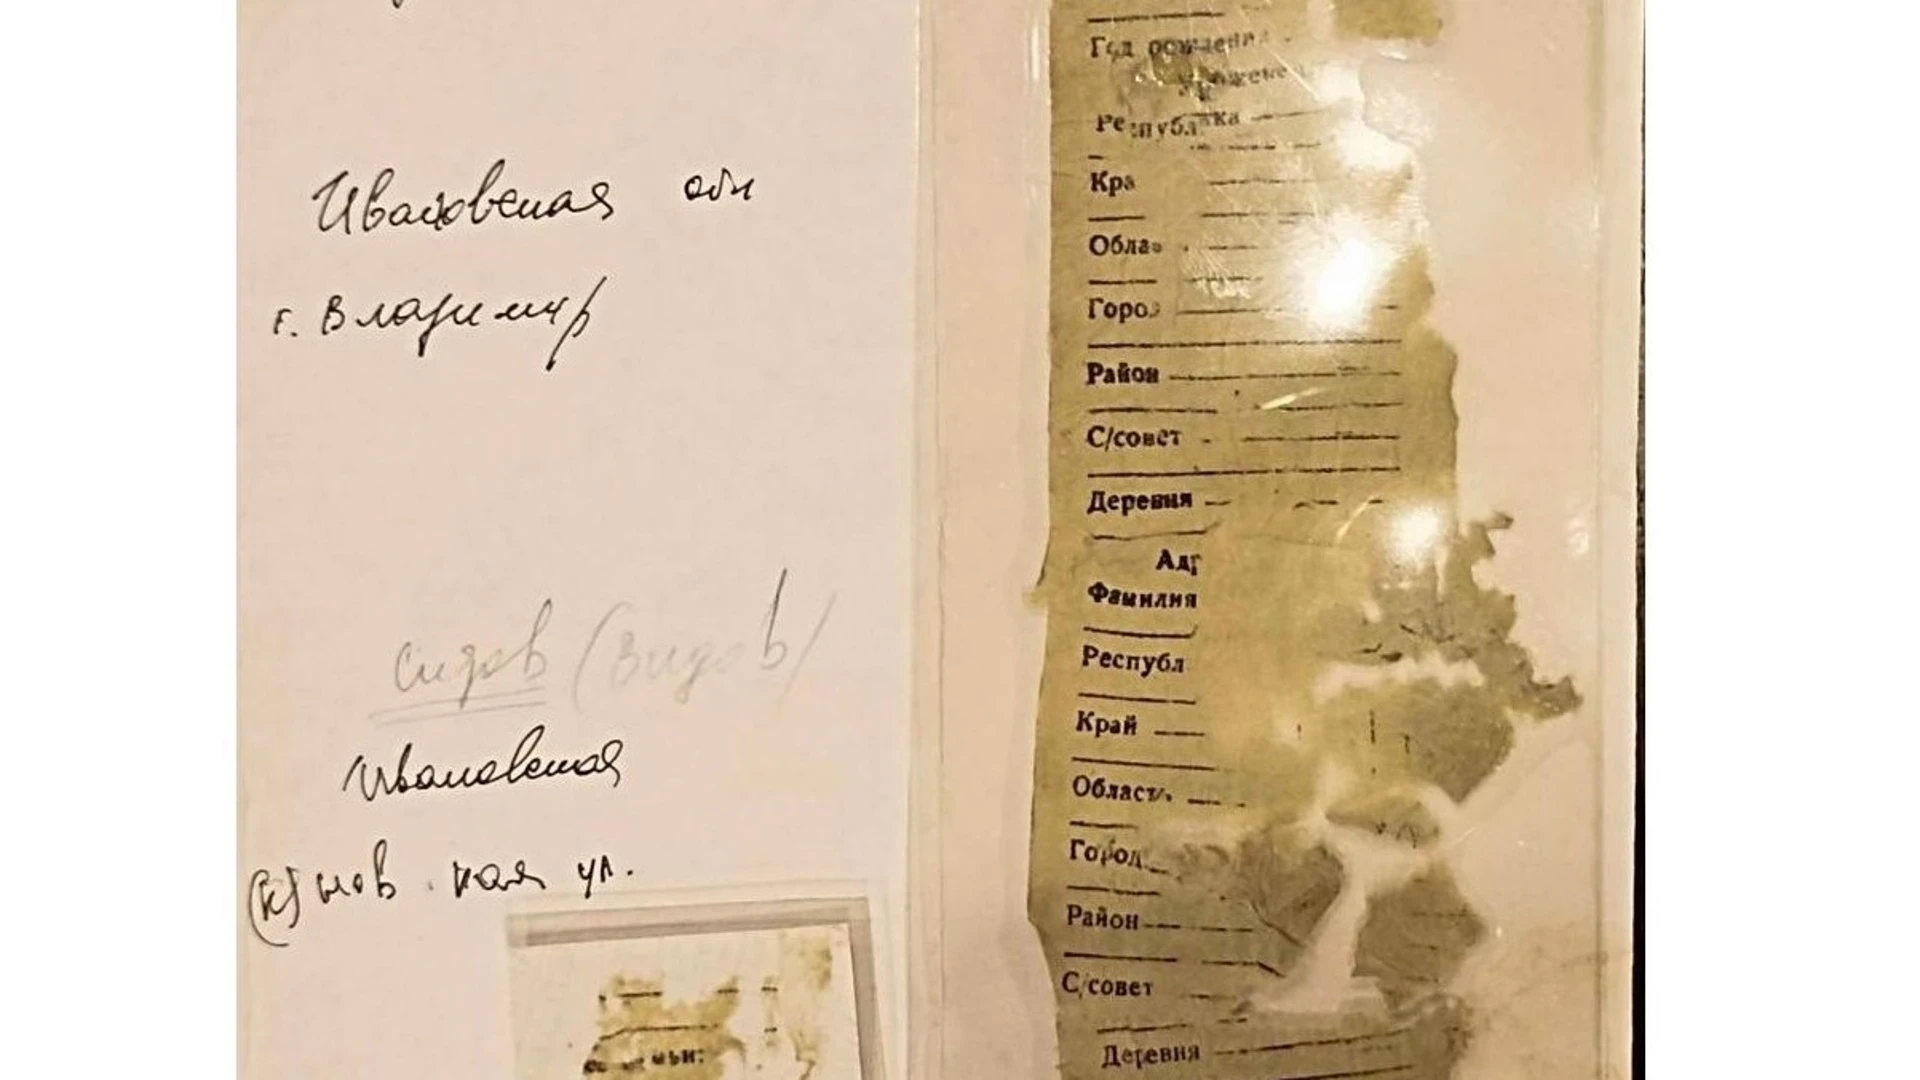 Ивановская обл
г. Владимир
Сидов (Видов)
Ивановская
(к) нов . кая ул.
мьи:
Год рождения
Уроженец
Республика
Кра
Облас
Город
Район
С/совет
Деревня
Адр
Фамилия
Республ
Край
Область
Город
Район
С/совет
Деревня